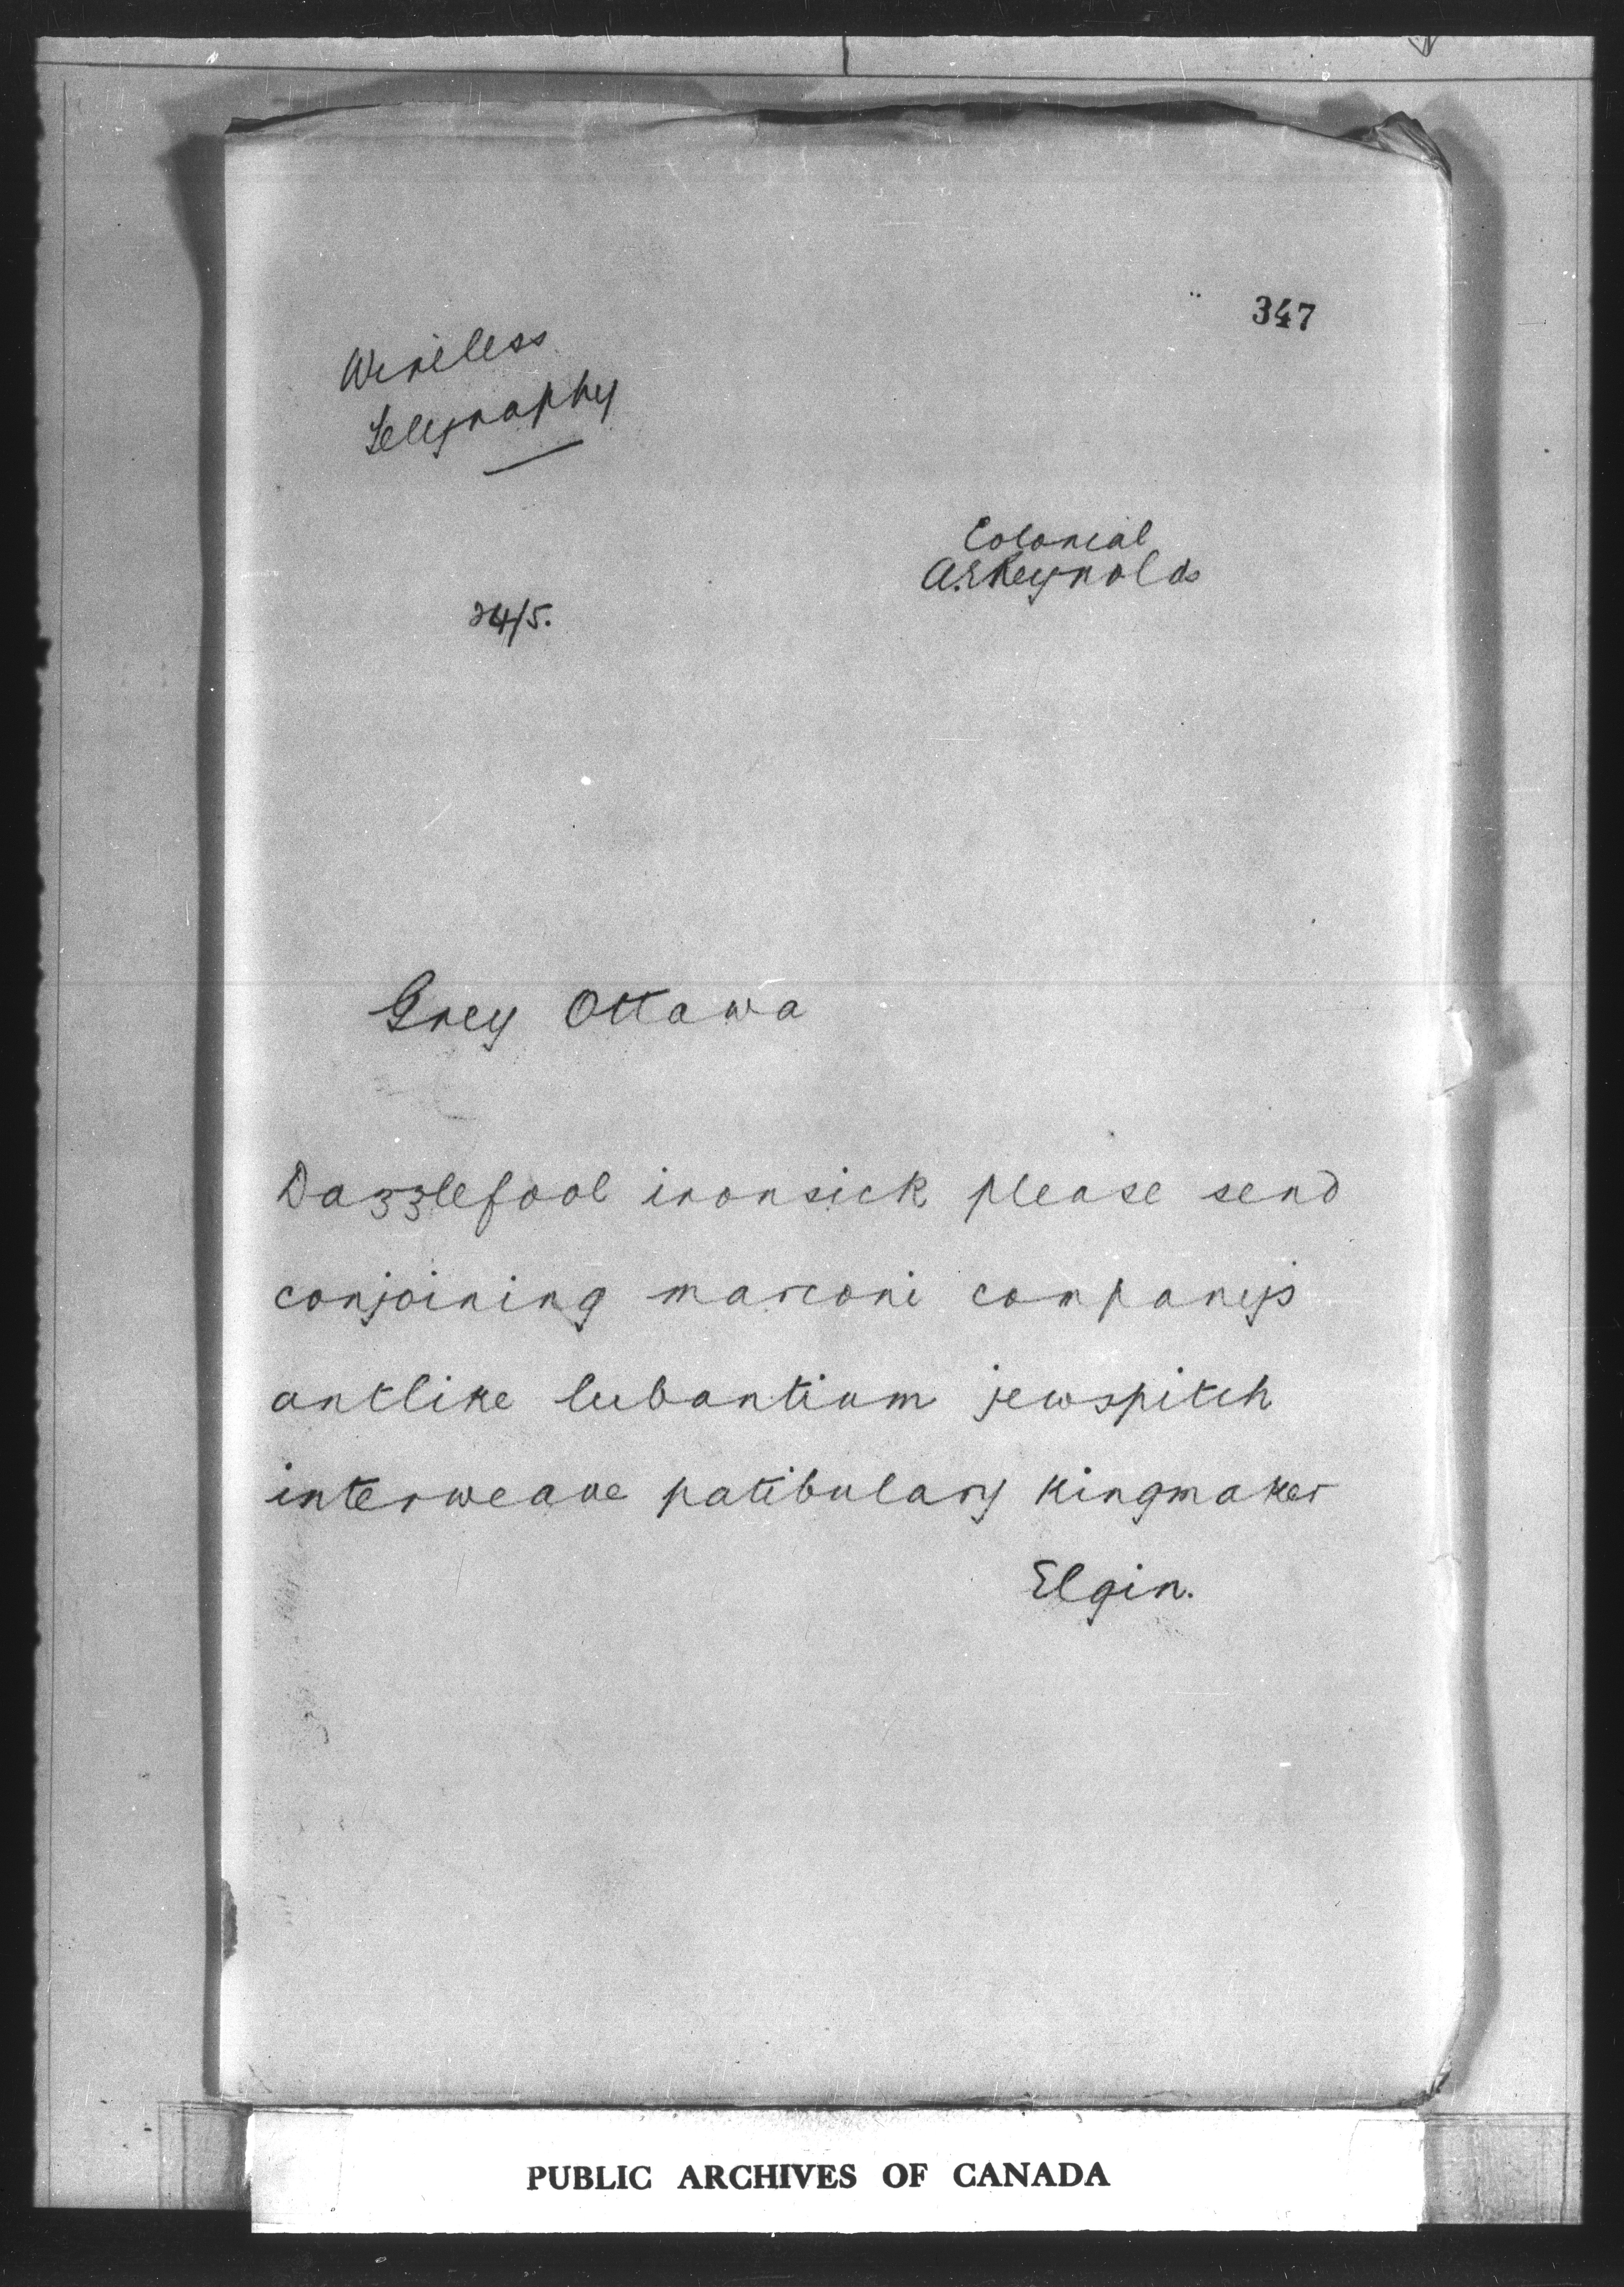 347
Wireless
Telegraphy
Colonial
A.E.Reynolds
24/5.
Grey Ottawa
Dazzlefool ironsick please send
conjoining marconi companys
antlike lubantium jewspitch
interweave patibulary kingmaker
Elgin.
PUBLIC ARCHIVES OF CANADA